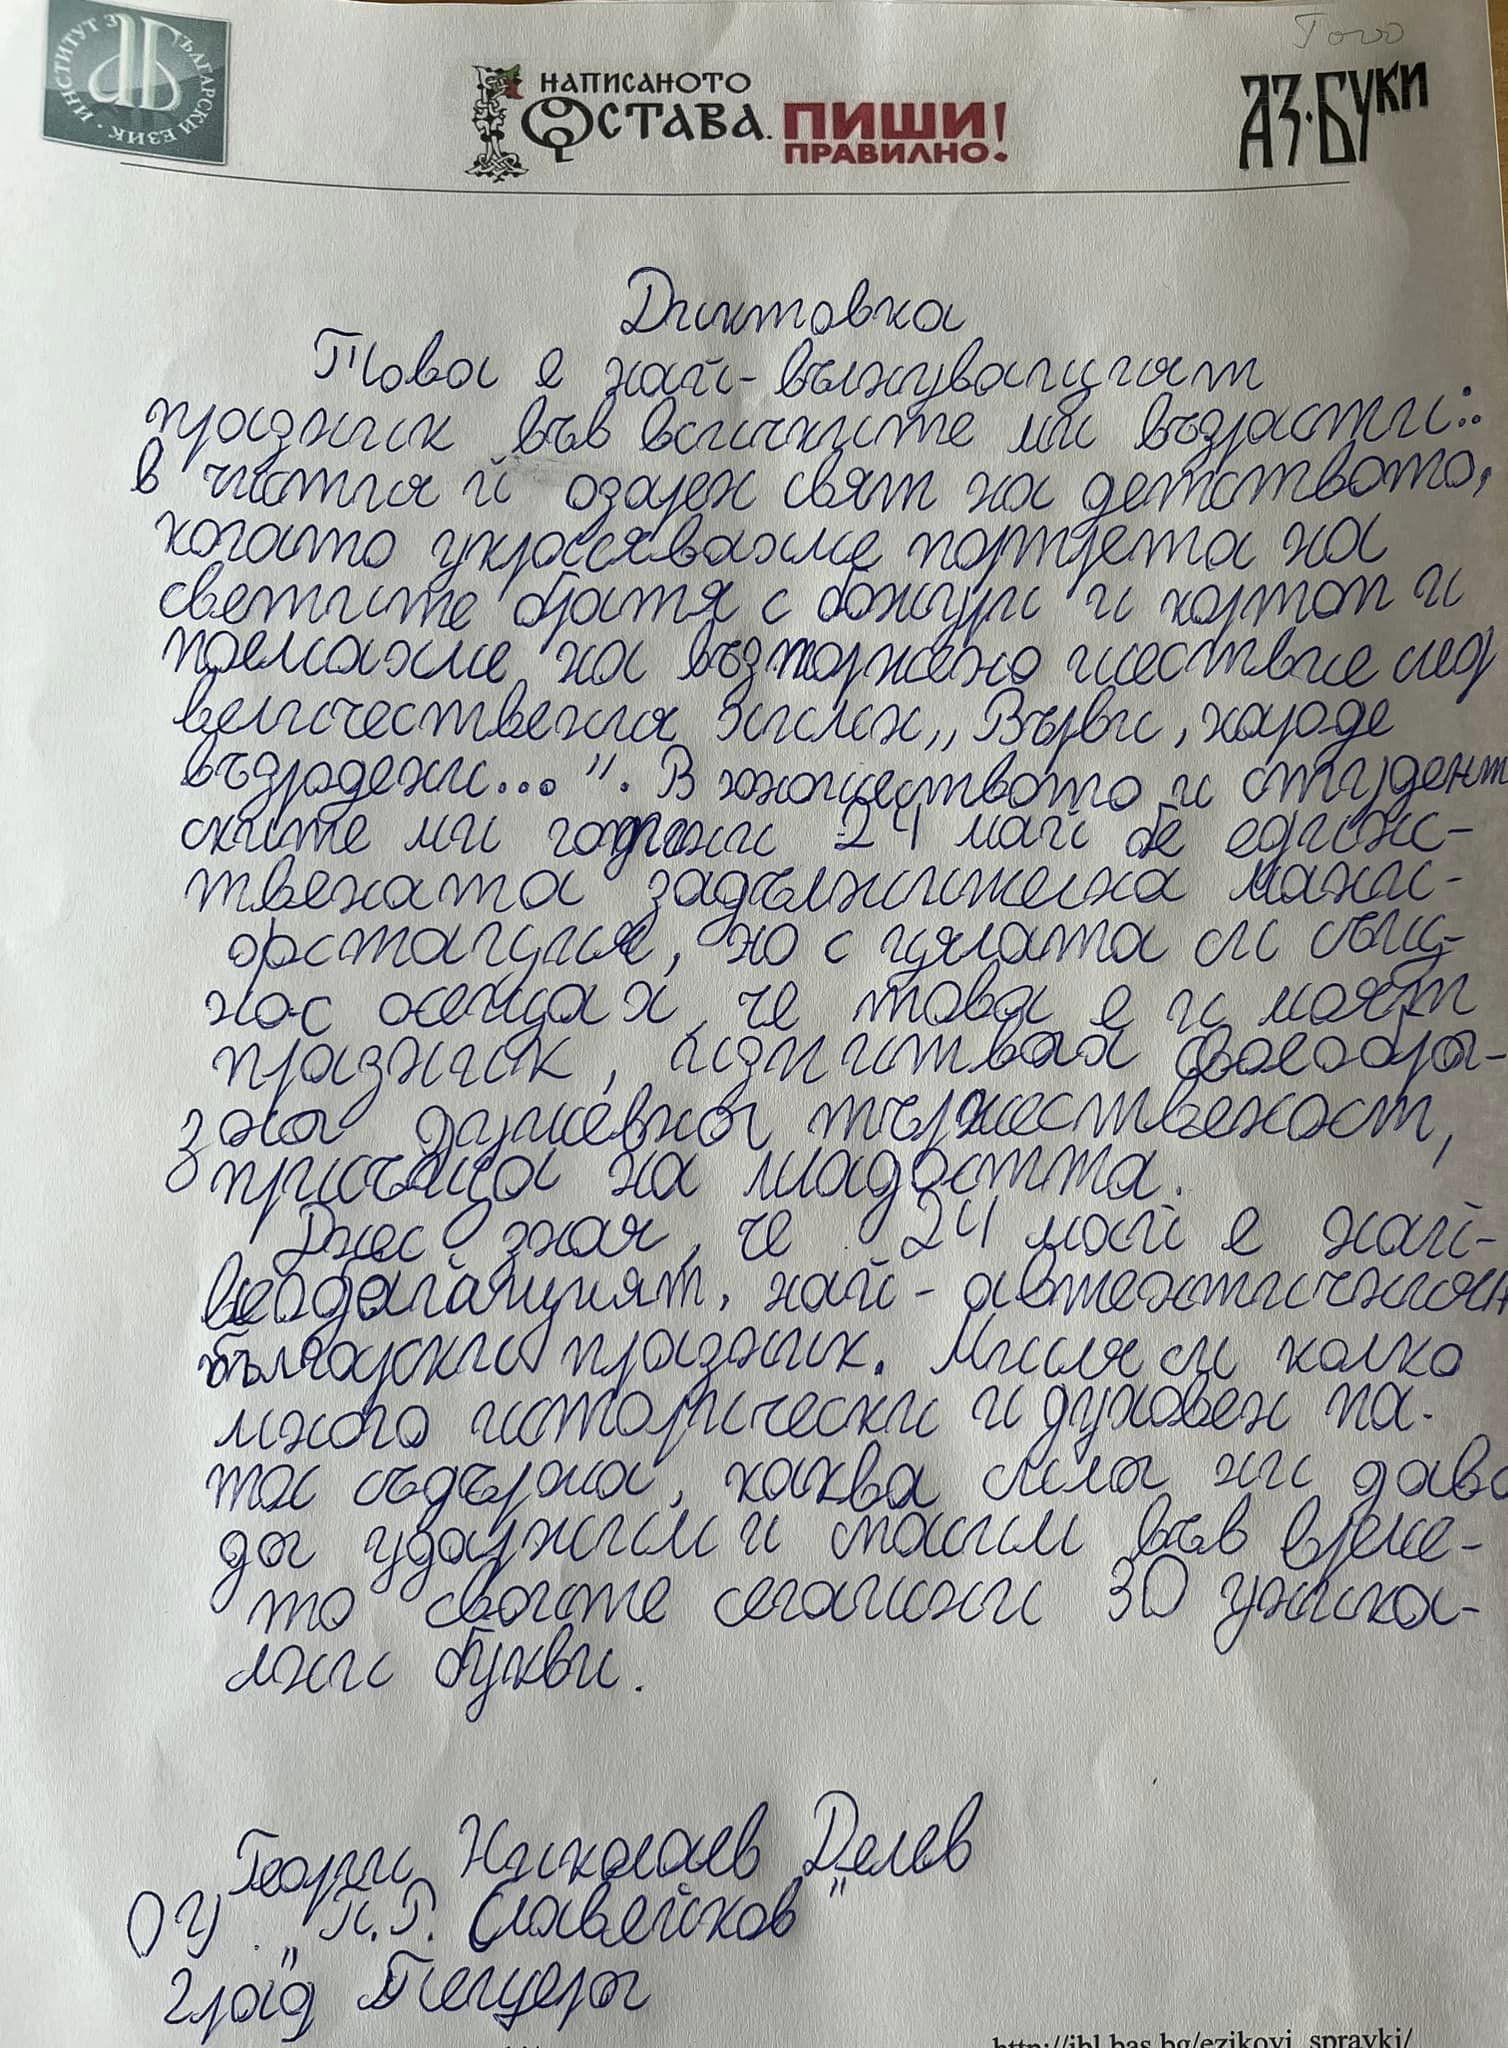 ИНСТИТУТ ЗА БЪЛГАРСКИ ЕЗИК
НАПИСАНОТО
ОСТАВА. ПИШИ
ПРАВИЛНО!
АЗ·БУКИ
Диктовка
Това е най-вълнуващият
празник във всичките ми възрасти:
в чистия й озарен свят на детството,
когато украсявахме портрета на
светите братя с божури и
поемахме на възторжено шествие след
величествения химн „Върви, народе
възродени...". В юношеството и студент
ските ми години 24 май бе един-
твената задължителна мани-
фстация, но с цялата си същ-
нос осещах, че това е и моят
празник, изпитвах своеобра-
зна душевна тържественост,
присъща на младостта.
Днес зная, че 24 май е най-
българския празник. Мисля си колко
много исторически и духовен па-
тос съдържа, каква сила ни дава
да удържим и опазим във време-
то своите сегашни 30 уника-
лни букви.
Георги Николаев Делев
ОУ „П.Р. Славейков"
град Пещера
http://ibl.bas.bg/ezikovi_spravki/